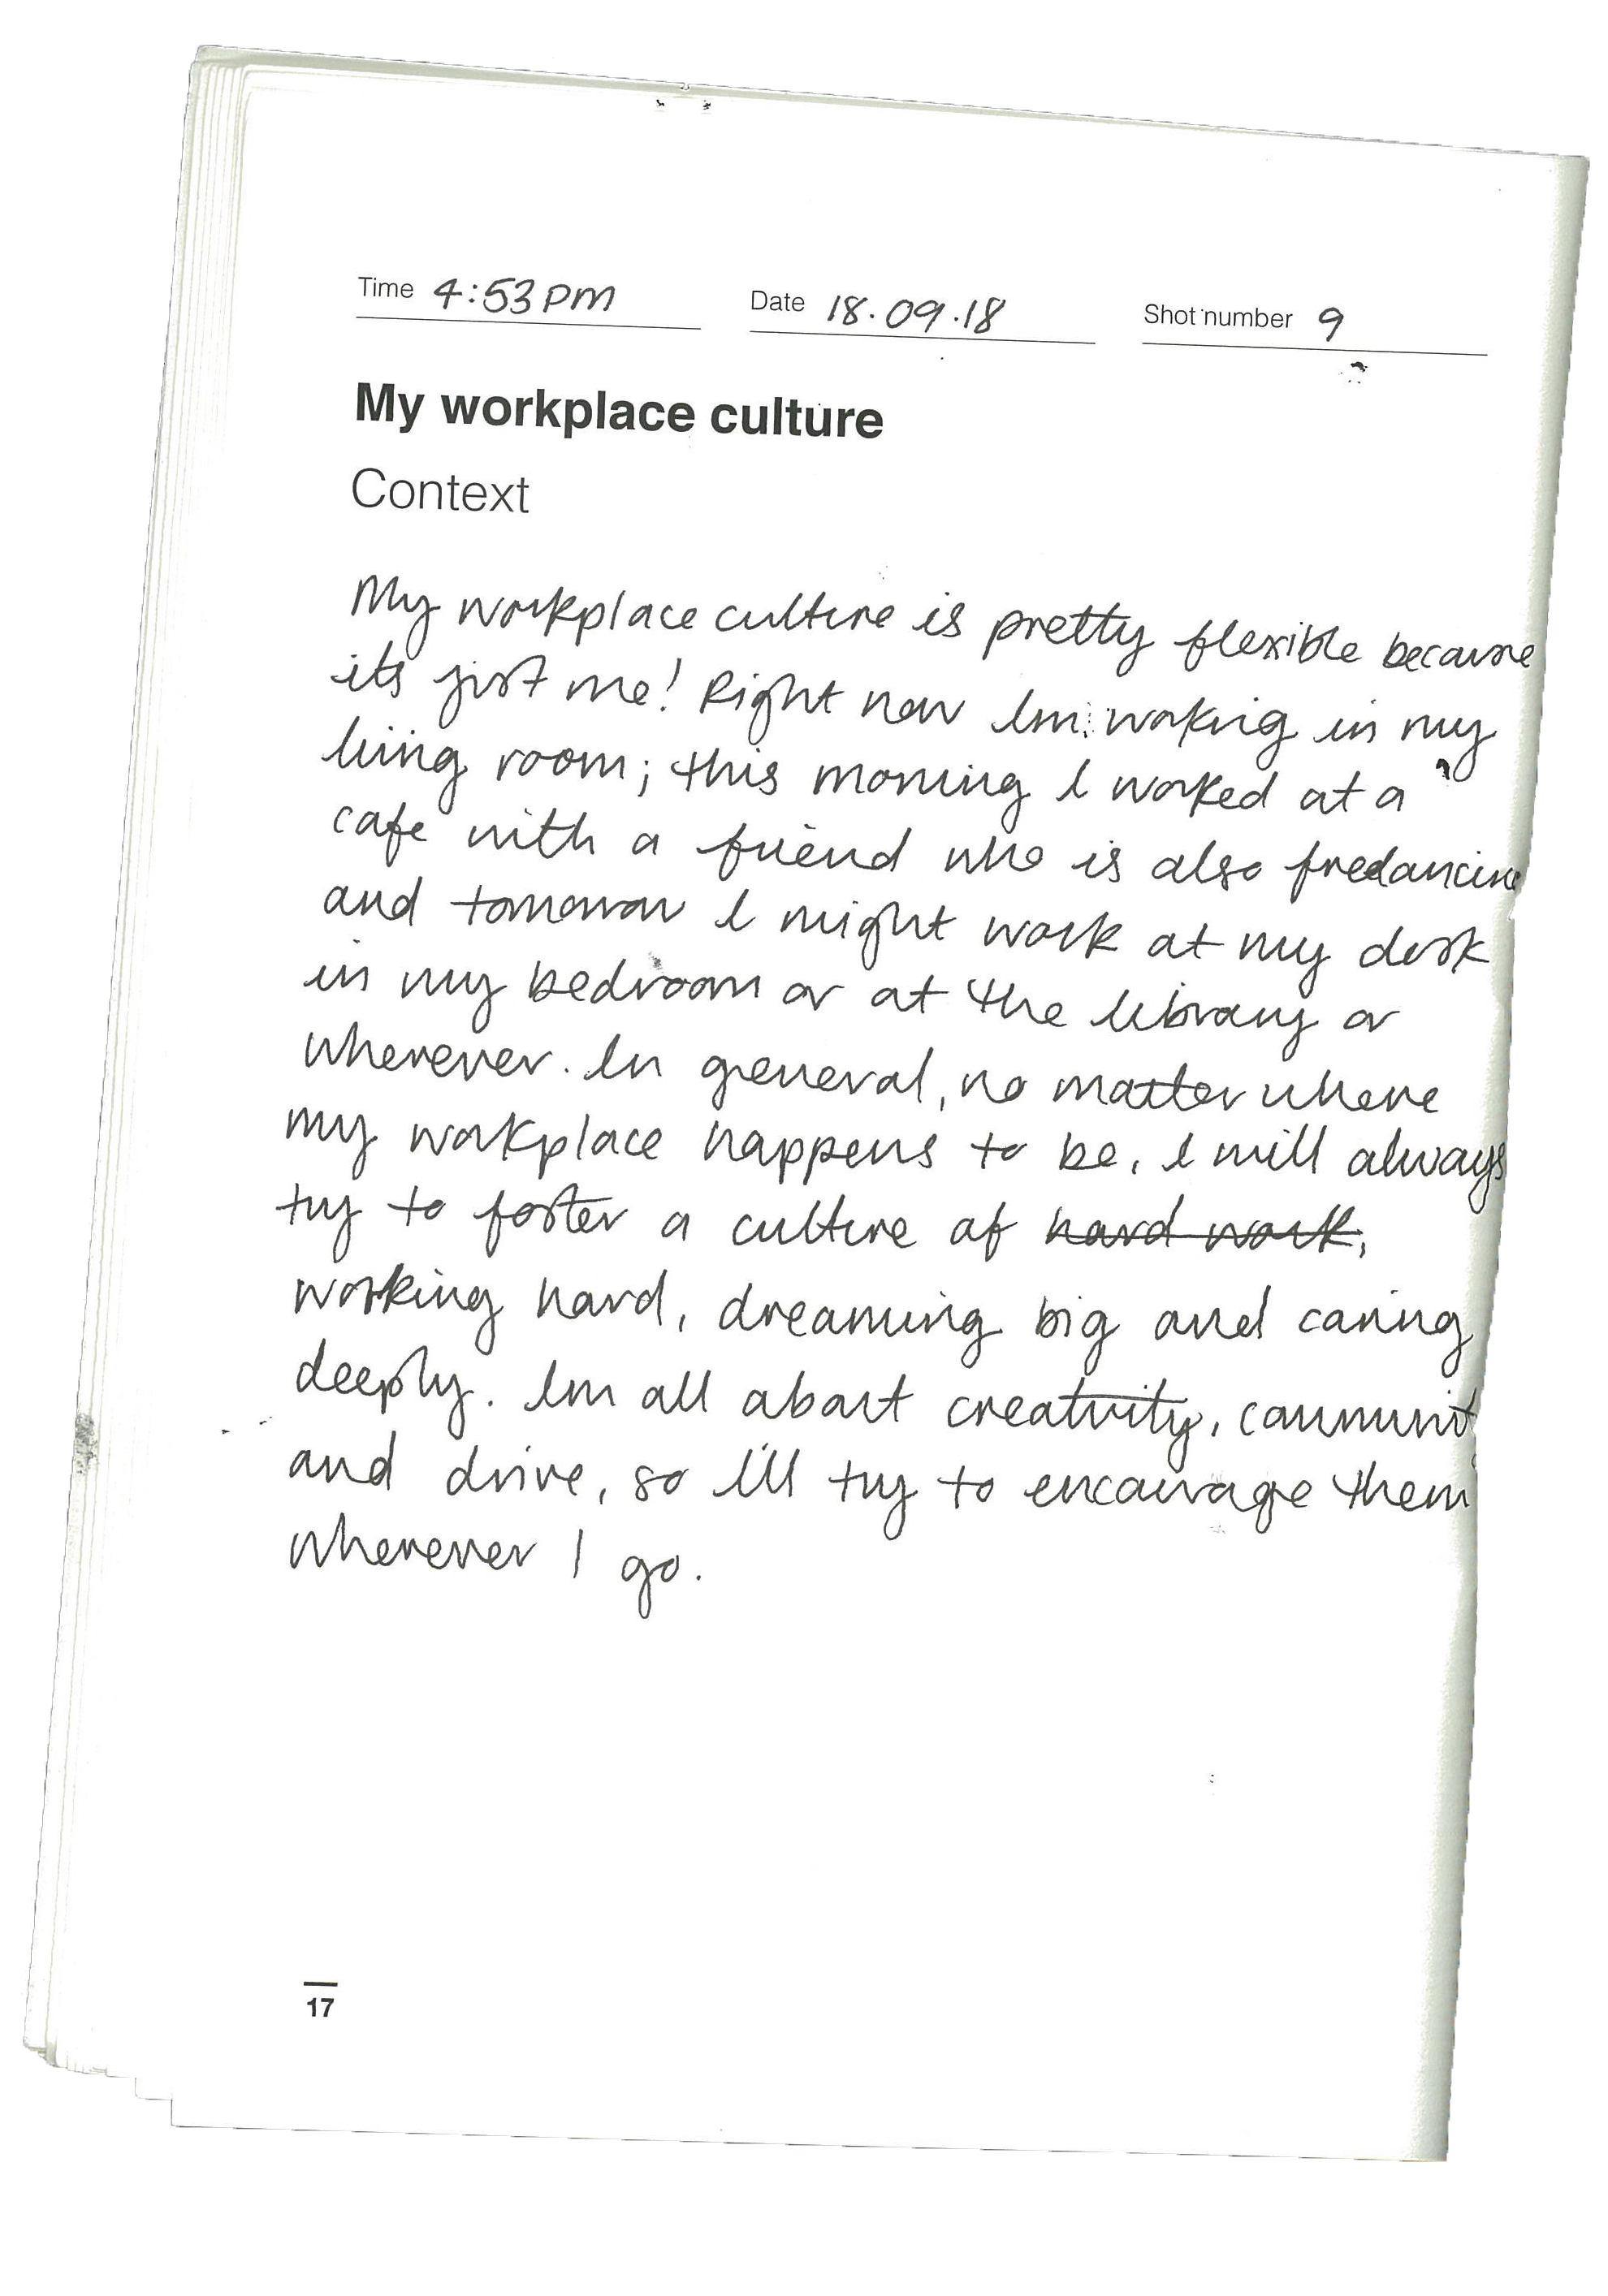 Time 4:53pm Date 18.09.18 Shot number 9
My workplace culture
Context
My workplace culture is pretty flexible because
its just me! Right now Im working in my
living room; this morning I worked at a
cafe with a friend who is also freelancing
and tomorrow I might work at my desk
in my bedroom or at the library or
wherever. In general, no matter where
my workplace happens to be, I will always
try to foster a culture of hard work,
working hard, dreaming big and caring
deeply. Im all about creativity, communit
and drive, so I'll try to encourage them
wherever I go.
17